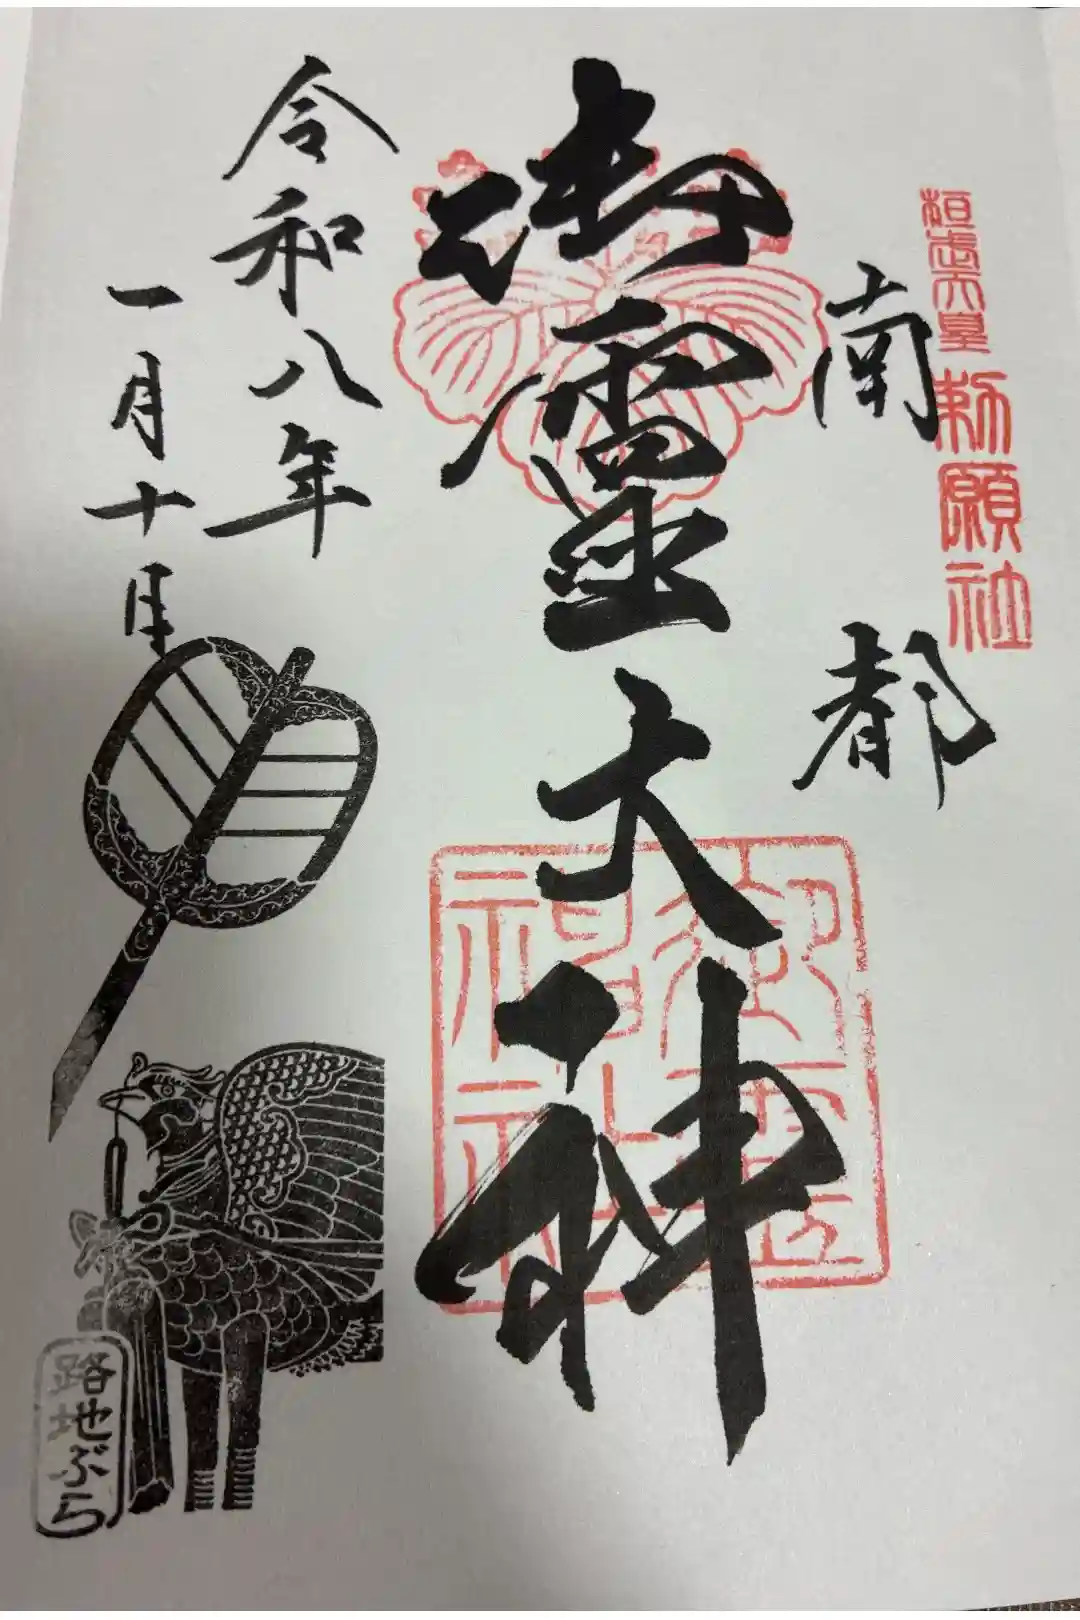 桓武天皇
勅願社
南都
御霊大神
御霊神社
令和八年
一月十日
路地ぶら